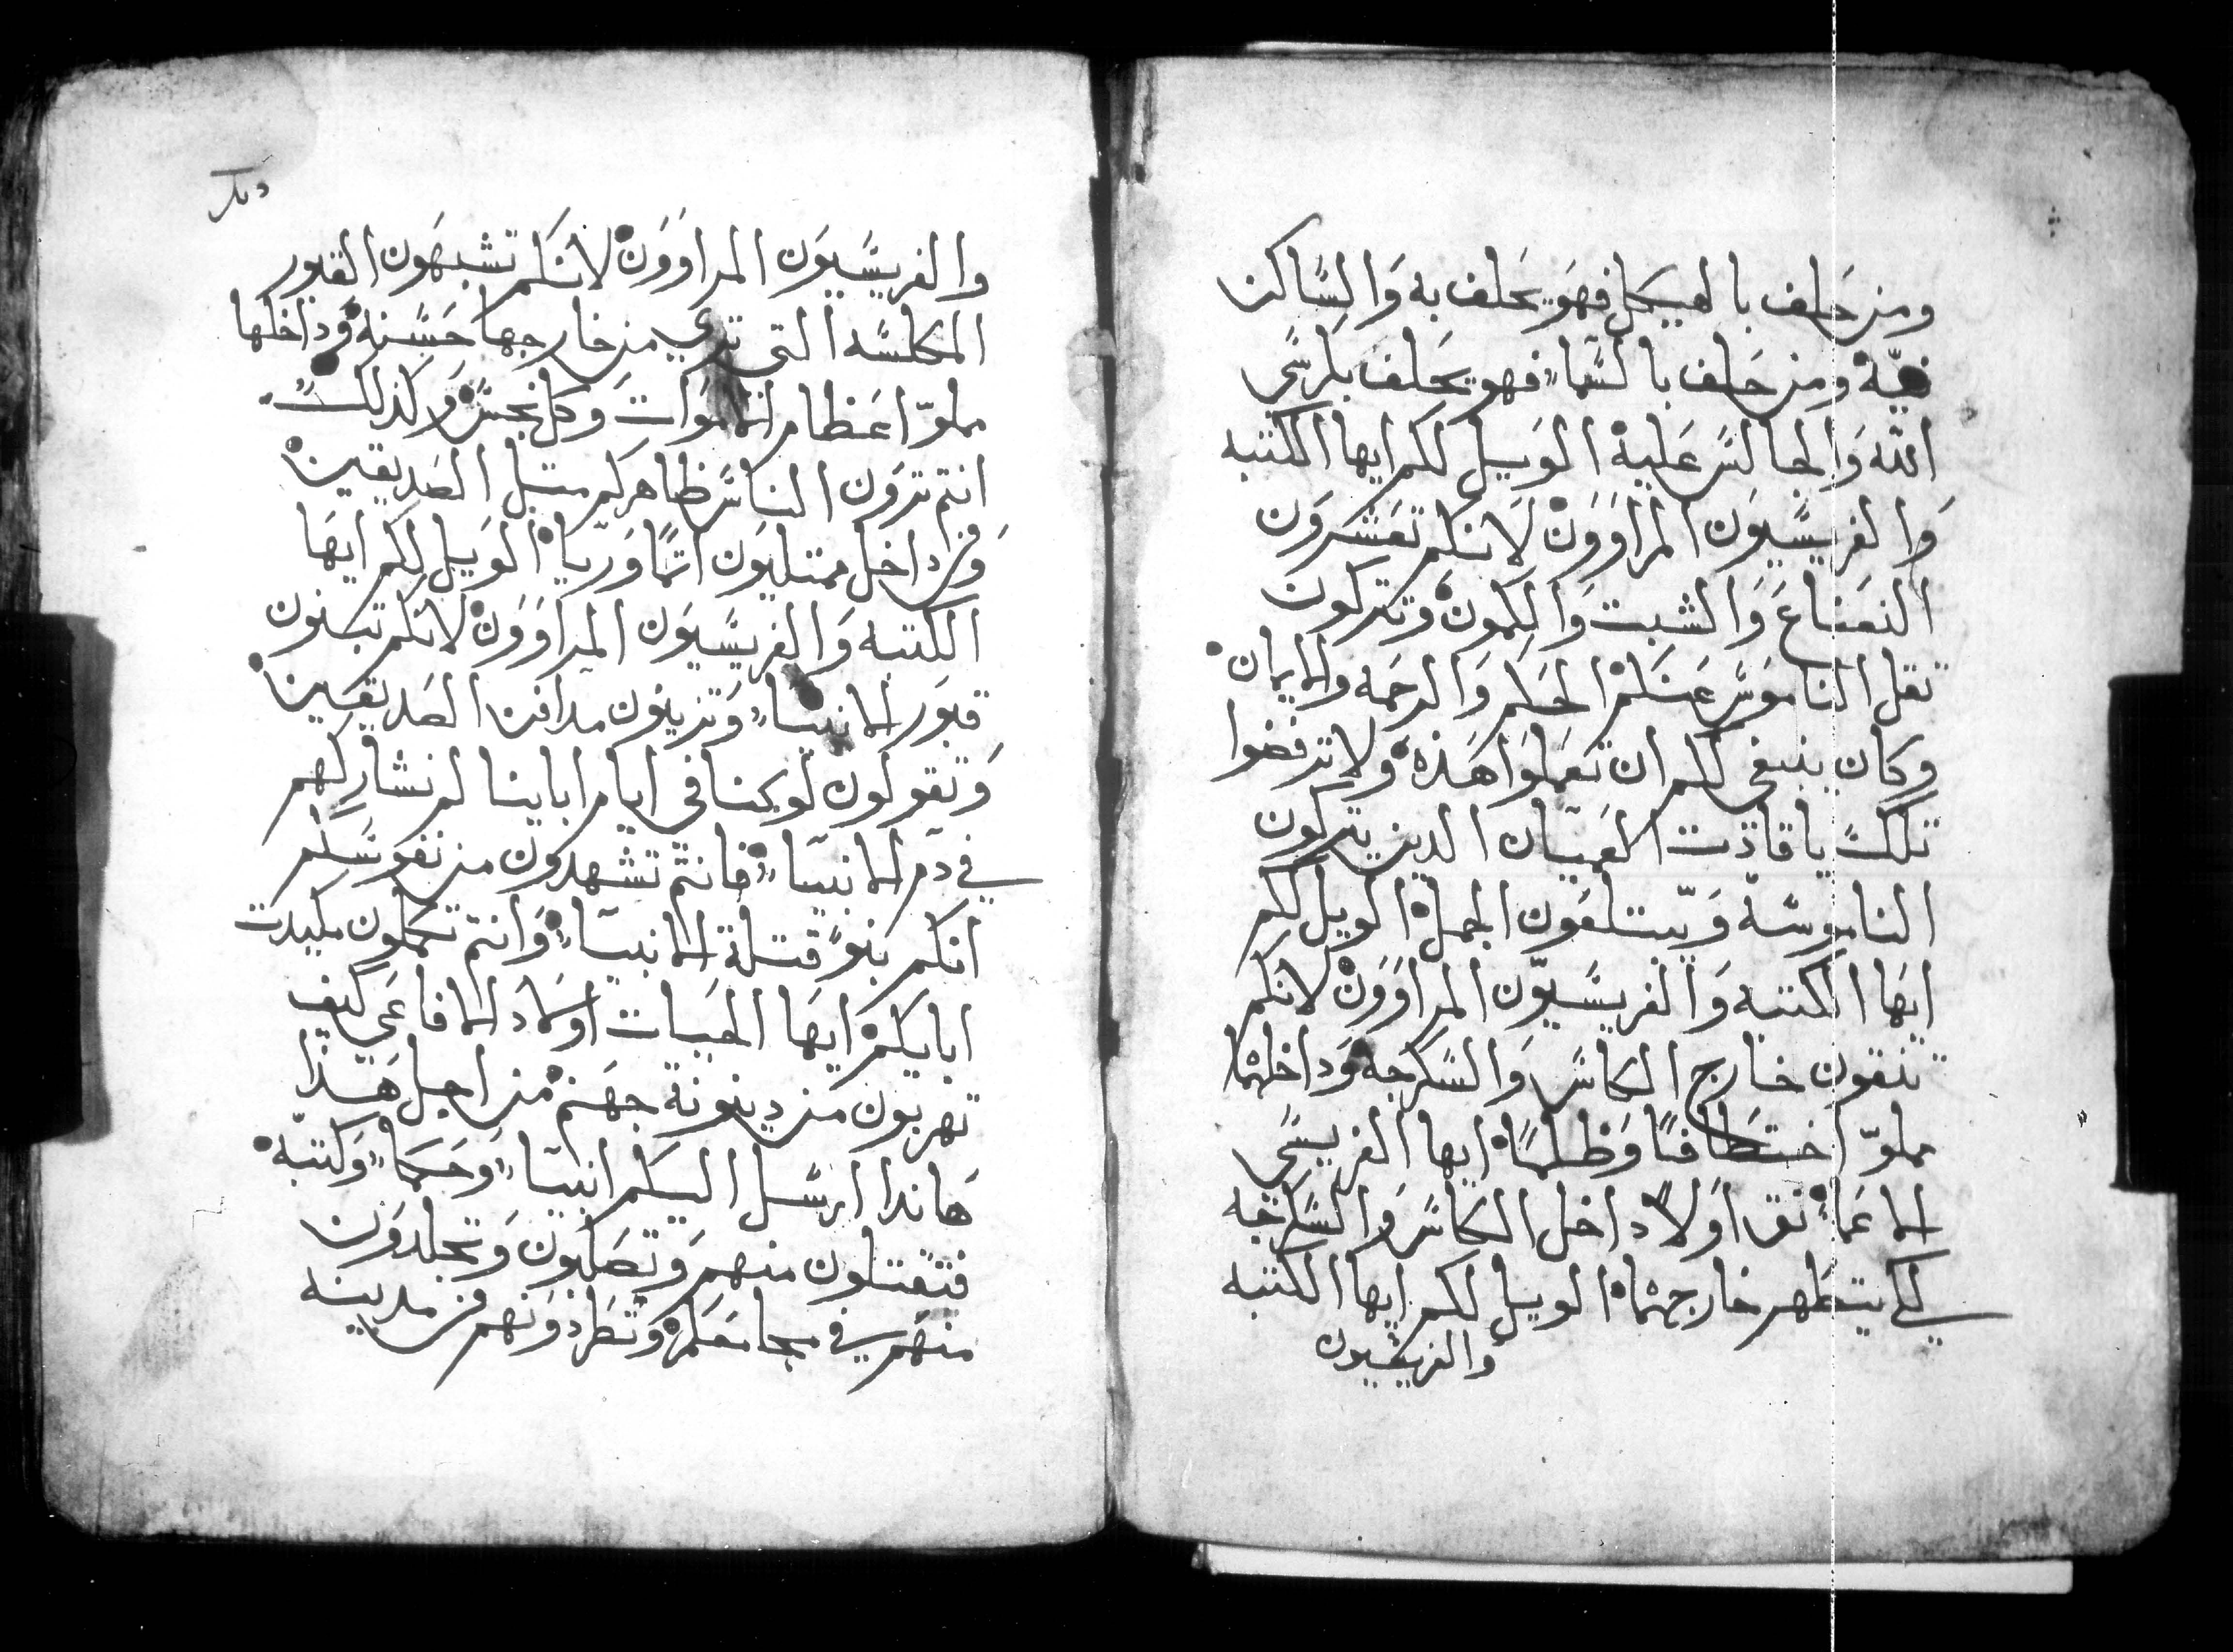 ومن حَلف بالهيكل فهوَ يحَلف به وَالسَّاكن
فيّه ومن حَلف بالسَّما۽ فهو يحَلف بكرسَّي
الله وَالجالسَّ عَليه الوَيل لكم ايها الكتبه
وَالفريسَّيوَن المراوَوَن لَانكم تعَشرَوَن
النعَناعَ وَالشبت وَالكمون وتتركون
تقل الناموَسَّ عَنكم الحَكم وَالرحَمه والايمان
وكان ينبغي لكم ان تعَملوَا هَذه ولا ترفضوا
تلك يا قادَت العَميَان الدين يتركون
الناموسَّه وَيّبتلعَون الجمل الويل لكم
ايهَا الكتبه وَالفريسَّيوّن المراوَوَن لانكم
تنقون خارج الكاسَّ وَالسَّكرجه وَداخلهما
مملوّ اختطَافاً وَظلماً ايها الفريسَّي
الاعَما نق اوَلاً داخل الكاسَّ وَالسَّكرجه
لكي يتطَهر خارجهما الويل لكم ايها الكتبه
والفريسَّيون
والفريسَّيوَن المراوَوَن لانكم تشبهَون القبور
المكلسَّه التي تري من خارجها حَسَّنه وَداخلها
مملوّ اعَظام اموَات وَكل نجسَّ وَكذلك
انتم ترَون الناسَّ ظاهركم متل الصَديقين
وَمن داخل ممتليوَن اتماً وَريا الوَيل لكم ايهَا
الكتبه وَالفريسَّيوَن المراوَوَن لانكم تبنون
قبوَر الانبيا۽ وَتزينوَن مدافن الصَديقين
وَتقولون لو كنا في ايام اباينا لم نشاركهم
في دَم الانبيَا۽ فانتم تشهدون من نفوسَّكم
انكم بنوَ قتلة الانبيَا۽ وَانتم تكملون مكيدت
ابايكم ايهَا الحيَات اوَلاد الافاعَي كيف
تهربون من دينونة جهَنم من اجل هَذا
هَاندا ارسَّل اليكم انبيَا۽ وَحَكما۽ وَكتبه
فتقتلون منهم وَتصَلبون وَتجلدوَن
منهَم في مجامعَكم وَتطَردوَنهم من مدينه